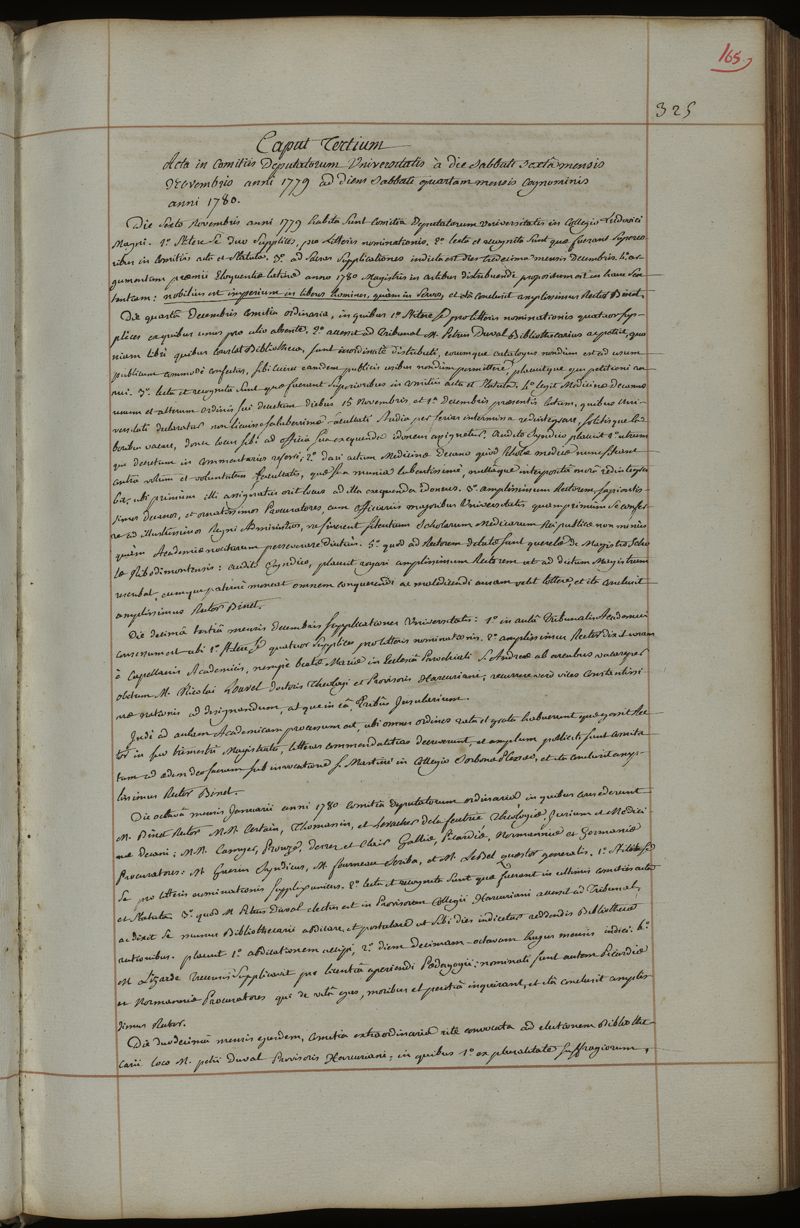 165.
325
Caput Tertium
Acta in Comitiis Deputatorum Universitatis à die Sabbati sextâ mensis
Novembris anni 1779 ad diem Sabbati quartam mensis cognominis
anni 1780.
Die Sexto Novembris anni 1779 habita sunt Comitia Deputatorum Universitatis in Collegio Ludovici
Magni. 1º Stetere se duo Supplices, pro Litteris nominationis. 2º lecta et recognita sunt quæ fuerant superio-
ribus in Comitiis acta et Statuta. 3º ad Sacras Supplicationes indicta est dies tredecima mensis Decembris. 4º ar-
gumentum præmii Eloquentiæ latinæ anno 1780 Magistris in artibus distribuendi propositum est in hanc Sen-
tentiam: nobilius est imperium in liberos homines, quàm in Servos, et ità conclusit amplissimus Rector Binet.
Die quartâ Decembris Comitia ordinaria, in quibus 1º Stetere se pro litteris nominationis quatuor Sup-
plices ex quibus unus pro alio absente. 2º accessit ad Tribunal M. Petrus Duval Bibliothecarius ac petiit, quo
niam libri quibus constat Bibliotheca, sunt inordinatè distributi, eorumque catalogus nondum est ad usum
publicum commodè confectus, sibi licere eandem publicis usibus nondum permittere, placuitque ejus petitioni an-
nui. 3º lecta et recognita sunt quæ fuerant superioribus in Comitiis acta et Statuta. 4º legit Medicinæ Decanus
unum et alterum ordinis sui decretum diebus 15 Novembris et 1ª Decembris præsentis latum, quibus Uni-
versitati declaratur non licuisse saluberrimæ facultati Studia per ferias intermissa redintegrare, solitisque la-
boribus vacare, donec locus sibi ad officia sua exequenda idoneus assignetur. Audito Syndico placuit 1º utrum-
que decretum in commentarios referri; 2º dari actum Medicinæ Decano quod Scholæ medicæ nunc sileant
contra votum et voluntatem facultatis, quæ sua munia lubentissimè, nullâque interpositâ morâ redintegra-
bit, ubi primùm illi assignatus erit locus ad illa exequenda idoneus. 3º amplissimum Rectorem, sapientis-
simos Decanos, et ornatissimos Procuratores, cum officiariis majoribus Universitatis quamprimùm se confer-
re ad illustrissimos Regni Administros, ne sinerent silentium Scholarum Medicarum Reipublicæ non minùs
quàm Academiæ nociturum perseverare diutiùs. 5º quod ad Rectorem delatæ sunt querelæ de Magistro Scho-
læ: audito Syndico, placuit rogari amplissimum Rectorem ut ad dictum Magistrum
rescribat, eumque paternè moneat omnem conquerendi ac maledicendi ansam velit tollere, et ità conclusit
amplissimus Rector Binet.
Die decimâ tertiâ mensis Decembris Supplicationes Universitatis: 1º in aulâ Tribunalis Academici
consessum est ubi 1º Stetere se quatuor Supplices pro litteris nominationis. 2º amplissimus Rector dixit unam
è Capellaniis Academicis, nempè beatæ Mariæ in Ecclesiâ Parochiali S. Andreæ ab arcubus vacare per
obitum M. Nicolai Louvel doctoris Theologi et Provisoris Harcuriani, recurrere verò vices Constantissi-
mæ nationis ad designandum, atque in eâ, Tribûs Insularium.
Indè ad aulam Academicam processum est, ubi omnes ordines rata et grata habuerunt quæ gessit Rec-
tor in suo trimestri Magistratu, litteras commendatitias decreverunt, et amplum polliciti sunt comita-
tum ad ædem deo sacram sub invocatione S. Martini in Collegio Sorbonæ Plessæo, et ità conclusit amp-
lissimus Rector Binet.
Die octavâ mensis Januarii anni 1780 Comitia Deputatorum ordinaria in quibus consederunt
M. Binet Rector M.M. Certain, Thomassin, et Levacher de la feutrie Theologiæ Jurium et Medici-
næ decani; M.M. Camyer, Brouzé, Derrez et Clair Galliæ, Picardiæ, Normanniæ et Germaniæ
Procuratores. M Guerin Syndicus, M fourneau Scriba, et M. Lebel quæstor generalis. 1º Stitit se
pro litteris nominationis supplex unicus. 2º lecta et recognita sunt quæ fuerant in ultimis comitiis acta
et Statuta. 3º quod M Petrus Duval electus est in Provisorem Collegii Harcuriani accessit ad Tribunal,
ac dixit se munus Bibliothecarii abdicare, et postulare ut sibi dies indicetur reddendis Bibliothecæ
rationibus. placuit 1º abdicationem accipi, 2º diem decimam-octavam hujus mensis indici. 4º
M Lizarde Supplicavit pro licentiâ aperiendi Pædagogii; nominati sunt autem Picardiæ
et Normanniæ Procuratores qui de vitâ ejus, moribus et peritiâ inquirant, et ità conclusit amplis-
simus Rector.
Die duodecimâ mensis ejusdem, Comitia extraordinaria ritè convocata ad electionem Bibliothe-
carii loco M. petri Duval Provisoris Harcuriani; in quibus 1º ex pluralitate suffragiorum,